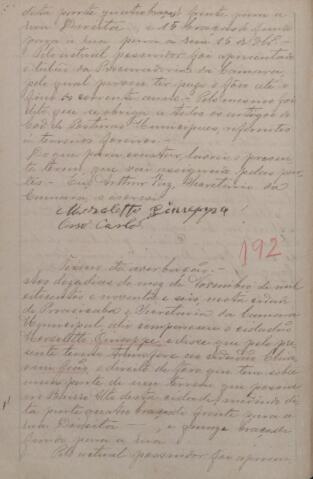 dita parte quatro braças frente para a
rua Direita e 15 braças de fundo
para a rua para a rua 15 de
Pelo actual possuidor foi apresentado
o talão da Procuradoria da Camara,
pelo qual provou ter pago o fôro até o
fim do corrente anno. Pelo mesmo foi
dito que se obriga a todos os artigos do
Cod. de Posturas Municipaes, referentes
a terrenos foreiros.
Do que para constar lavrei o presente
termo, que vai assignado pelas par
tes. Eu, Arthur Secretario da
Camara, o escrevi
Merzeletto Giuseppe
Carlo
192
Termo de averbação
Aos dezadois do mez de Novembro de mil
oitocentos e noventa e seis nesta cidade
de Piracicaba e Secretaria da Camara
Municipal ahi compareceu o cidadão
Giuseppe e disse que pelo pre
sente termo transfere ao cidadão
o direito de fôro que tem sobre
uma parte de um terreno que possue
no Bairro Alto desta cidade, medindo di
ta parte quatro braças de frente para a
rua Direita e quinze braças de
fundo para a rua
Pelo actual possuidor foi apresen